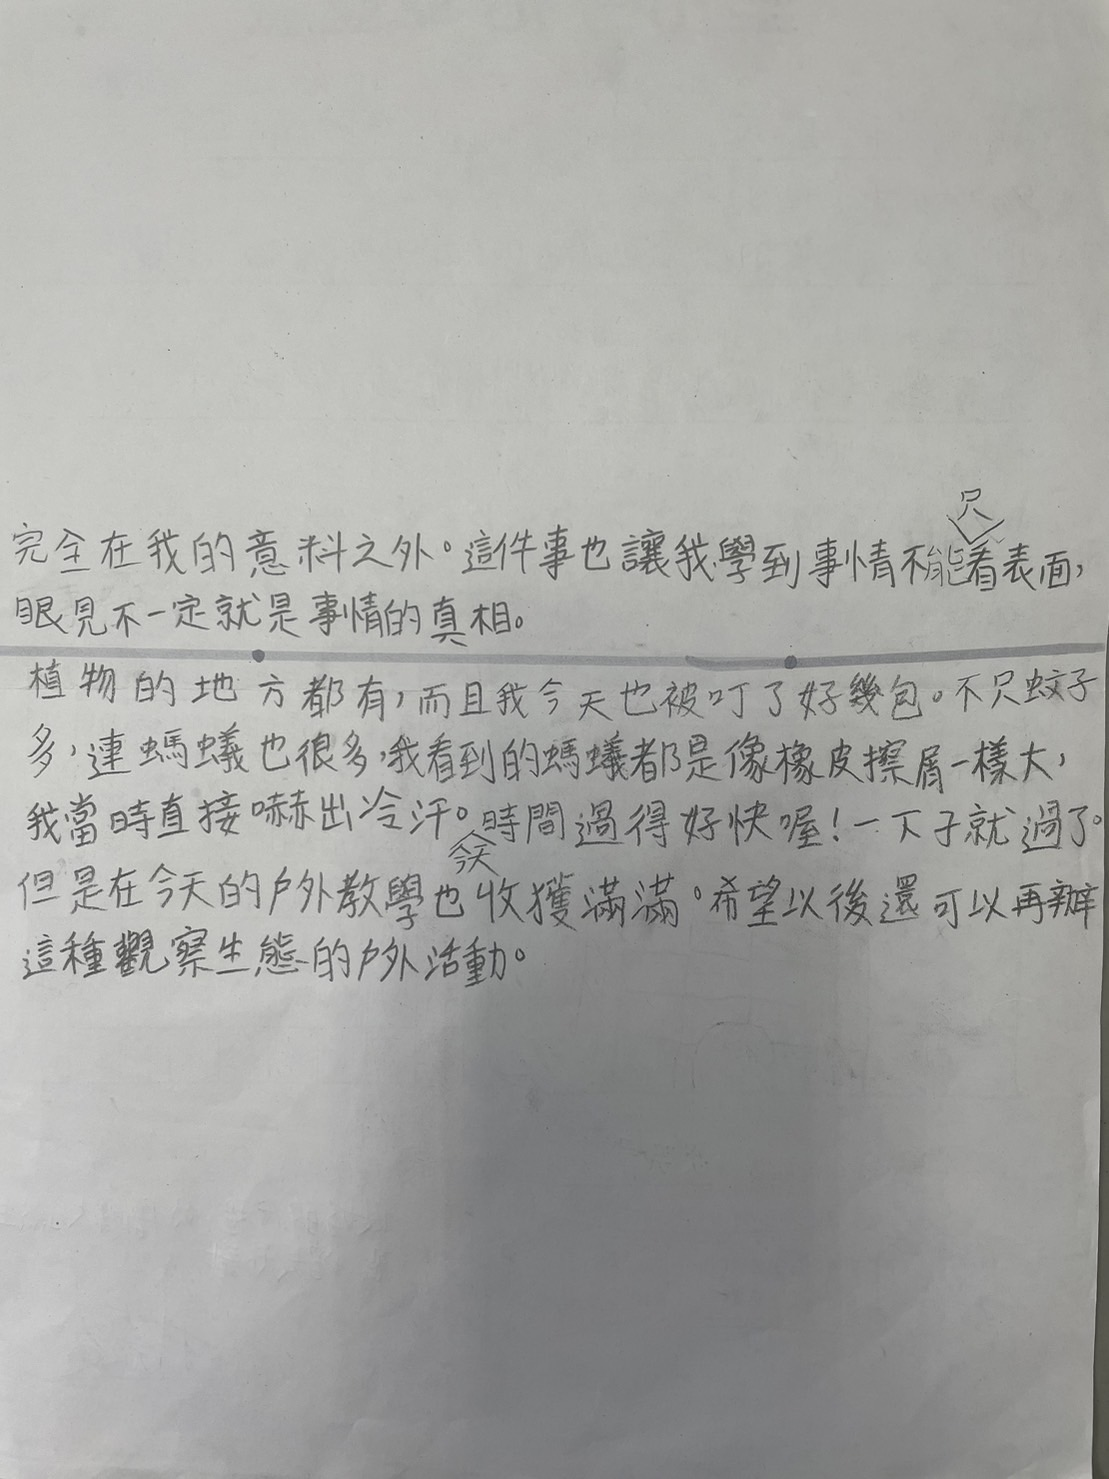 完全在我的意料之外。這件事也讓我學到事情不能只看表面，
眼見不一定就是事情的真相。
植物的地方都有，而且我今天也被叮了好幾包。不只蚊子
多，連螞蟻也很多，我看到的螞蟻都是像橡皮擦屑一樣大，
我當時直接嚇出冷汗。今天時間過得好快喔！一下子就過了。
但是在今天的戶外教學也收獲滿滿。希望以後還可以再辦
這種觀察生態的戶外活動。